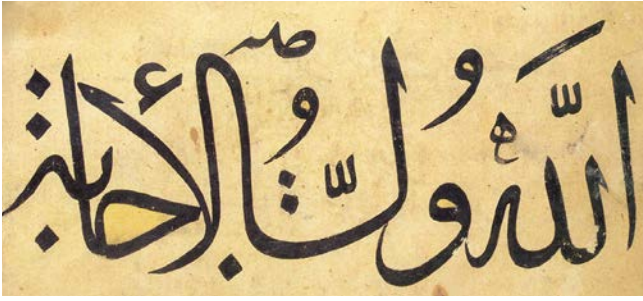 اللهُ وليُّ الأجابة